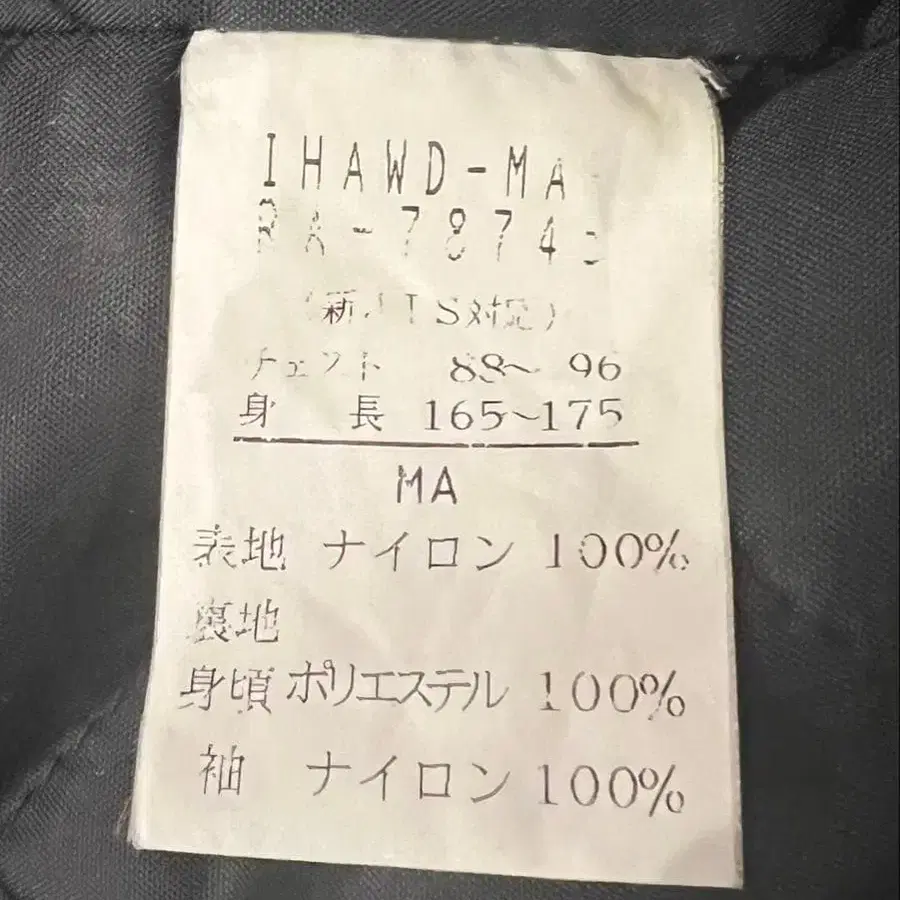 IHAWD-MA
RA-7874
(新JIS対応)
チェスト 88~ 96
身 長 165~175
MA
表地 ナイロン 100%
裏地
身頃 ポリエステル 100%
袖 ナイロン 100%